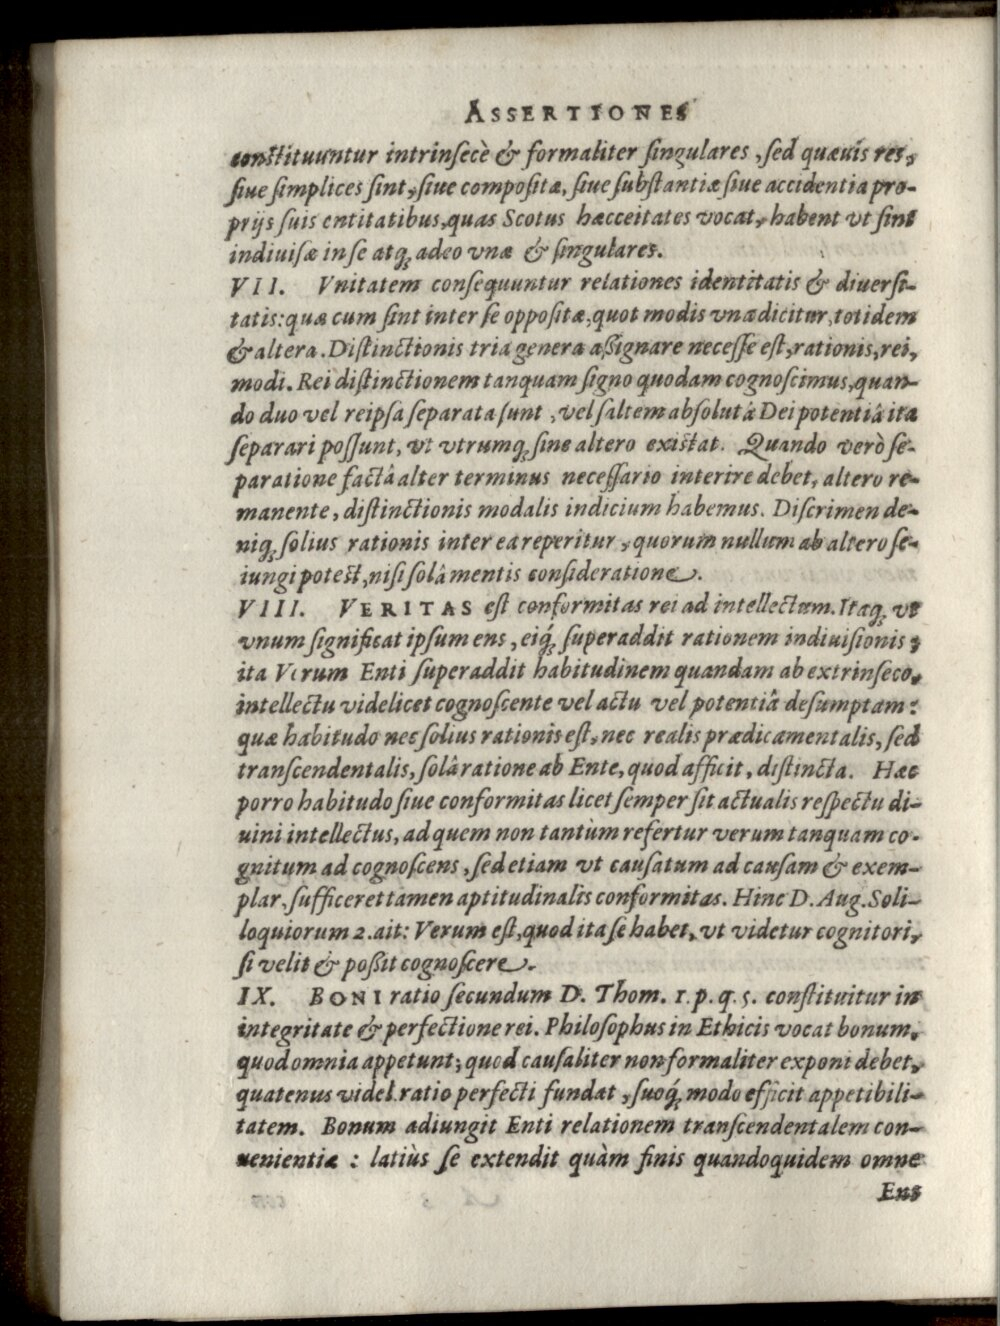 ASSERTIONES
constituuntur intrinsecè & formaliter singulares, sed quæuis res,
siue simplices sint, siue compositæ, siue substantiæ siue accidentia pro-
prijs suis entitatibus, quas Scotus hæcceitates vocat, habent vt sint
indiuisæ in se atq́; adeo vnæ & singulares.
VII. Vnitatem consequuntur relationes identitatis & diuersi-
tatis: quæ cum sint inter se oppositæ, quot modis vna dicitur, totidem
& altera. Distinctionis tria genera assignare necesse est, rationis, rei,
modi. Rei distinctionem tanquam signo quodam cognoscimus, quan-
do duo vel reipsa separata sunt, vel saltem absolutâ Dei potentiâ ita
separari possunt, vt vtrumq; sine altero existat. Quando verò se-
paratione factâ alter terminus necessario interire debet, altero re-
manente, distinctionis modalis indicium habemus. Discrimen de-
niq; solius rationis inter ea reperitur, quorum nullum ab altero se-
iungi potest, nisi solâ mentis consideratione.
VIII. VERITAS est conformitas rei ad intellectum. Itaq; vt
vnum significat ipsum ens, eiq́; superaddit rationem indiuisionis;
ita Verum Enti superaddit habitudinem quandam ab extrinseco,
intellectu videlicet cognoscente vel actu vel potentiâ desumptam:
quæ habitudo nec solius rationis est, nec realis prædicamentalis, sed
transcendentalis, solâ ratione ab Ente, quod afficit, distincta. Hæc
porro habitudo siue conformitas licet semper sit actualis respectu di-
uini intellectus, ad quem non tantùm refertur verum tanquam co-
gnitum ad cognoscens, sed etiam vt causatum ad causam & exem-
plar, sufficeret tamen aptitudinalis conformitas. Hinc D. Aug. Soli-
loquiorum 2. ait: Verum est, quod ita se habet, vt videtur cognitori,
si velit & possit cognoscere.
IX. BONI ratio secundum D. Thom. 1. p. q. 5. constituitur in
integritate & perfectione rei. Philosophus in Ethicis vocat bonum,
quod omnia appetunt; quod causaliter non formaliter exponi debet,
quatenus videl. ratio perfecti fundat, suoq́; modo efficit appetibili-
tatem. Bonum adiungit Enti relationem transcendentalem con-
uenientiæ: latiùs se extendit quàm finis quandoquidem omne
Ens